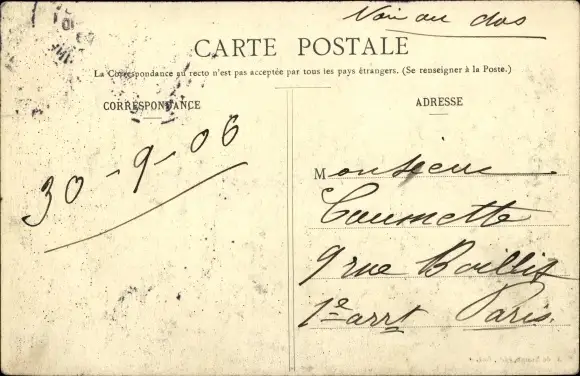 Voir au dos
CARTE POSTALE
La Correspondance au recto n'est pas acceptée par tous les pays étrangers. (Se renseigner à la Poste.)
CORRESPONDANCE
ADRESSE
30-9-06
Monsieur
Caumette
9 rue Baillif
1er arrt Paris.